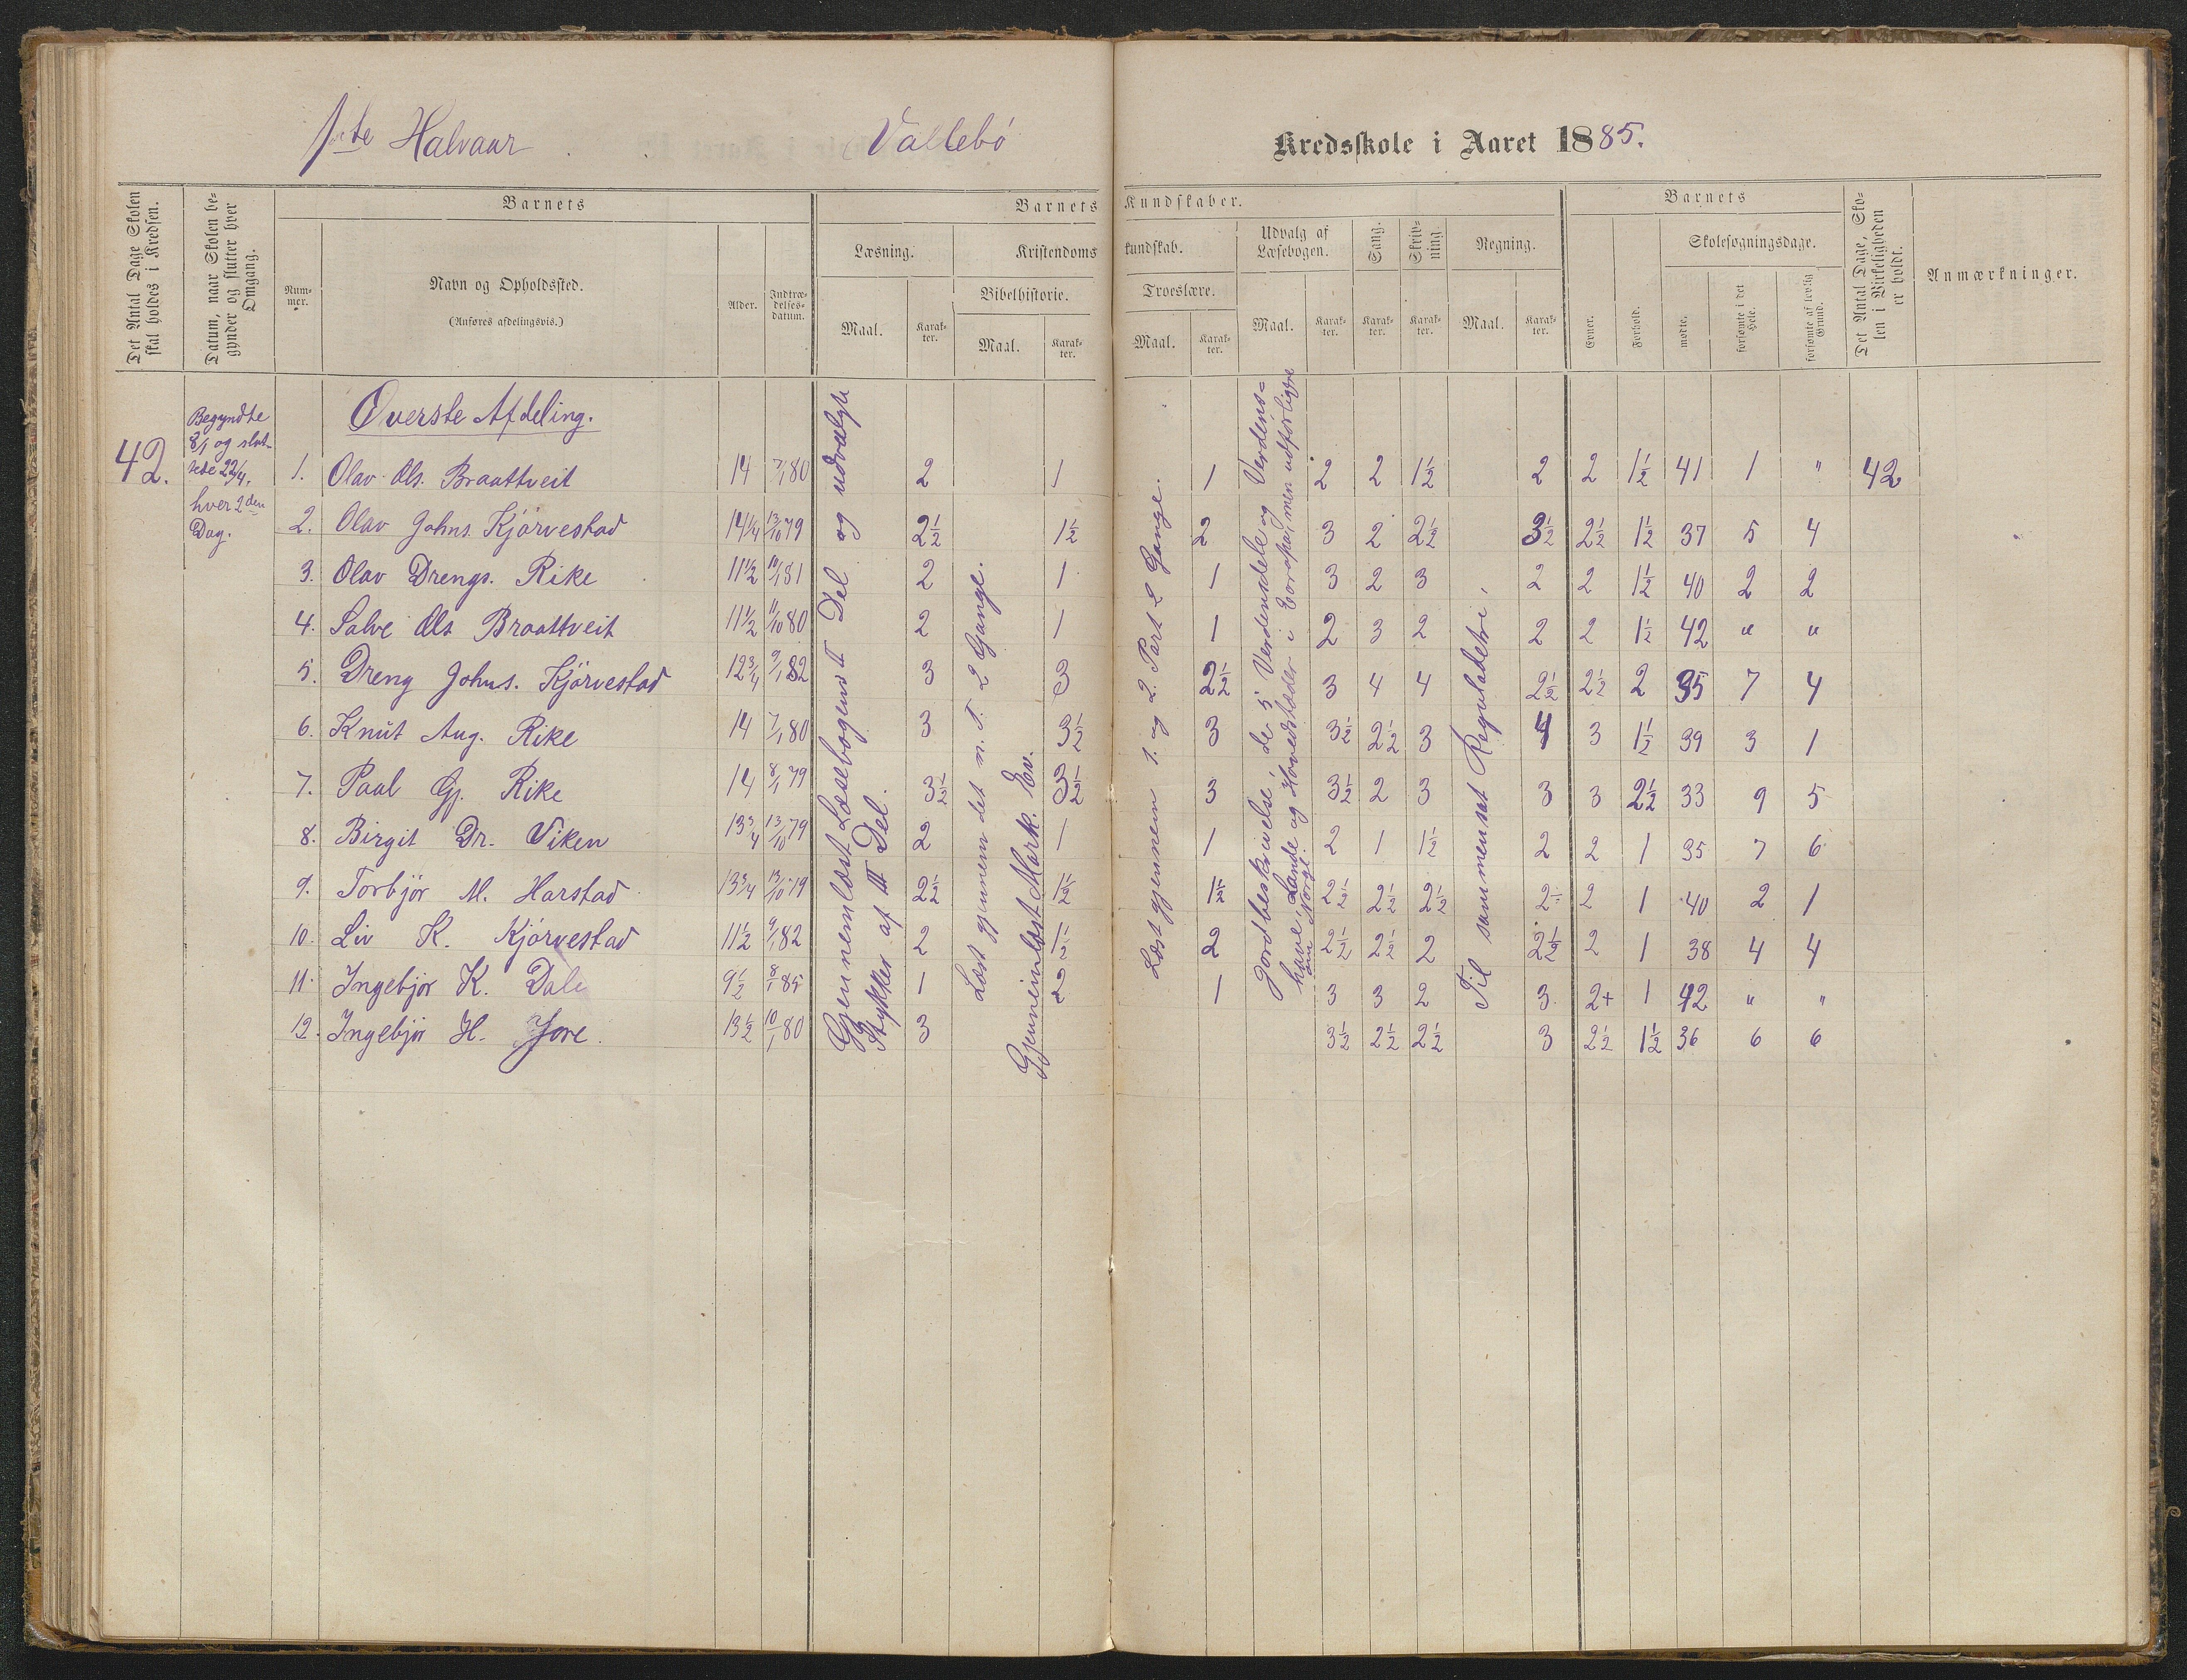 1ste Halvaar Vallebö Kredsskole i Aaret 1885.
Det Antal Dage Skolen skal holdes i Kredsen.
Datum, naar Skolen begynder og slutter hver Omgang.
Barnets
Num-mer.
Navn og Opholdssted.
(Anføres afdelingsvis.)
Alder.
Indtræ-delses-datum.
Barnets Kundskaber.
Læsning.
Maal.
Karak-ter.
Kristendoms kundskab.
Bibelhistorie.
Maal.
Karak-ter.
Troeslære.
Maal.
Karak-ter.
Udvalg af Læsebogen.
Maal.
Karak-ter.
Sang.
Karak-ter.
Skriv-ning.
Karak-ter.
Regning.
Maal.
Karak-ter.
Barnets
Evner.
Forhold.
Skolesøgningsdage.
mødte.
forsømte i det Hele.
forsømte af lovlig Grund.
Det Antal Dage, Skolen i Virkeligheden er holdt.
Anmærkninger.
42.
Begyndte
8/1 og slut-
tede 22/4,
hver 2den
Dag.
Överste Afdeling.
1. Olav Ols. Braattveit 14 7/1 80 2 1 1 2 2 1½ 2 2 1½ 41 1 " 42
2. Olav Johns. Kjörvestad 14¼ 13/10 79 2½ 1½ 2 3 2 2½ 3½ 2½ 1½ 37 5 4
3. Olav Drengs. Rike 11½ 10/1 81 2 1 1 3 2 3 2 2 1½ 40 2 2
4. Salve Ols Braattveit 11½ 11/10 80 2 1 1 2 3 2 2 2 1½ 42 " "
5. Dreng Johns. Kjörvestad 12¾ 9/1 82 3 3 2½ 3 4 4 2½ 2½ 2 35 7 4
6. Knut Aug. Rike 14 7/1 80 3 3½ 3 3½ 2½ 3 4 3 1½ 39 3 1
7. Paal Gj. Rike 14 8/1 79 3½ 3½ 3 3½ 2 3 3 3 2½ 33 9 5
8. Birgit Dr. Viken 13¾ 13/10 79 2 1 1 2 1 1½ 2 2 1 35 7 6
9. Torbjör M. Harstad 13¾ 13/10 79 2½ 1½ 1½ 2½ 2½ 2½ 2÷ 2 1 40 2 1
10. Liv K. Kjörvestad 11½ 9/1 82 2 1½ 2 2½ 2½ 2 2½ 2 1 38 4 4
11. Ingebjör K. Dale 9½ 8/1 85 1 2 1 3 3 2 3 2+ 1 42 " "
12. Ingebjör H. Jore 13½ 10/1 80 3 3½ 2½ 2½ 3 2½ 1½ 36 6 6
Gjennemlæst Læsebogens II Del og udvalgte
Stykker af III Del.
Læst gjennem det n. T. 2 Gange.
Gjennemlæst Mark. Ev.
Læst gjennem 1. og 2. Part 2 Gange.
Jordbeskrivelse, de 5 Verdensdele og Verdens=
have, Lande og Hovedstæder i Europa, men udförligere
om Norge.
Til sammensat Reguladetri,